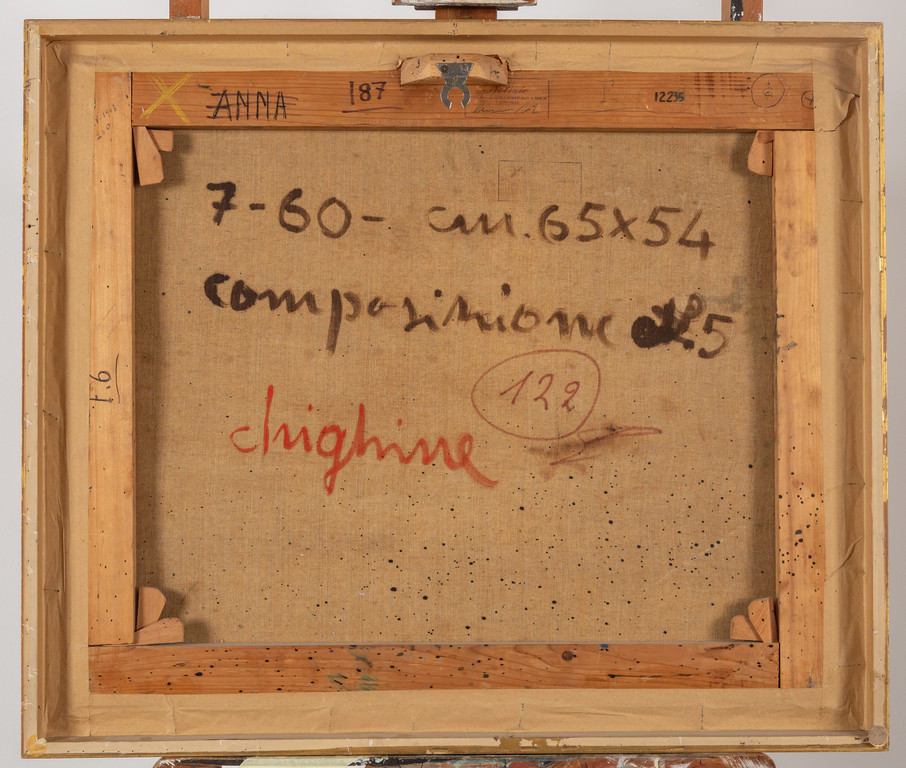 ANNA
187
12235
7-60- cm. 65x54
composizione N.5
122
chighine
f.6